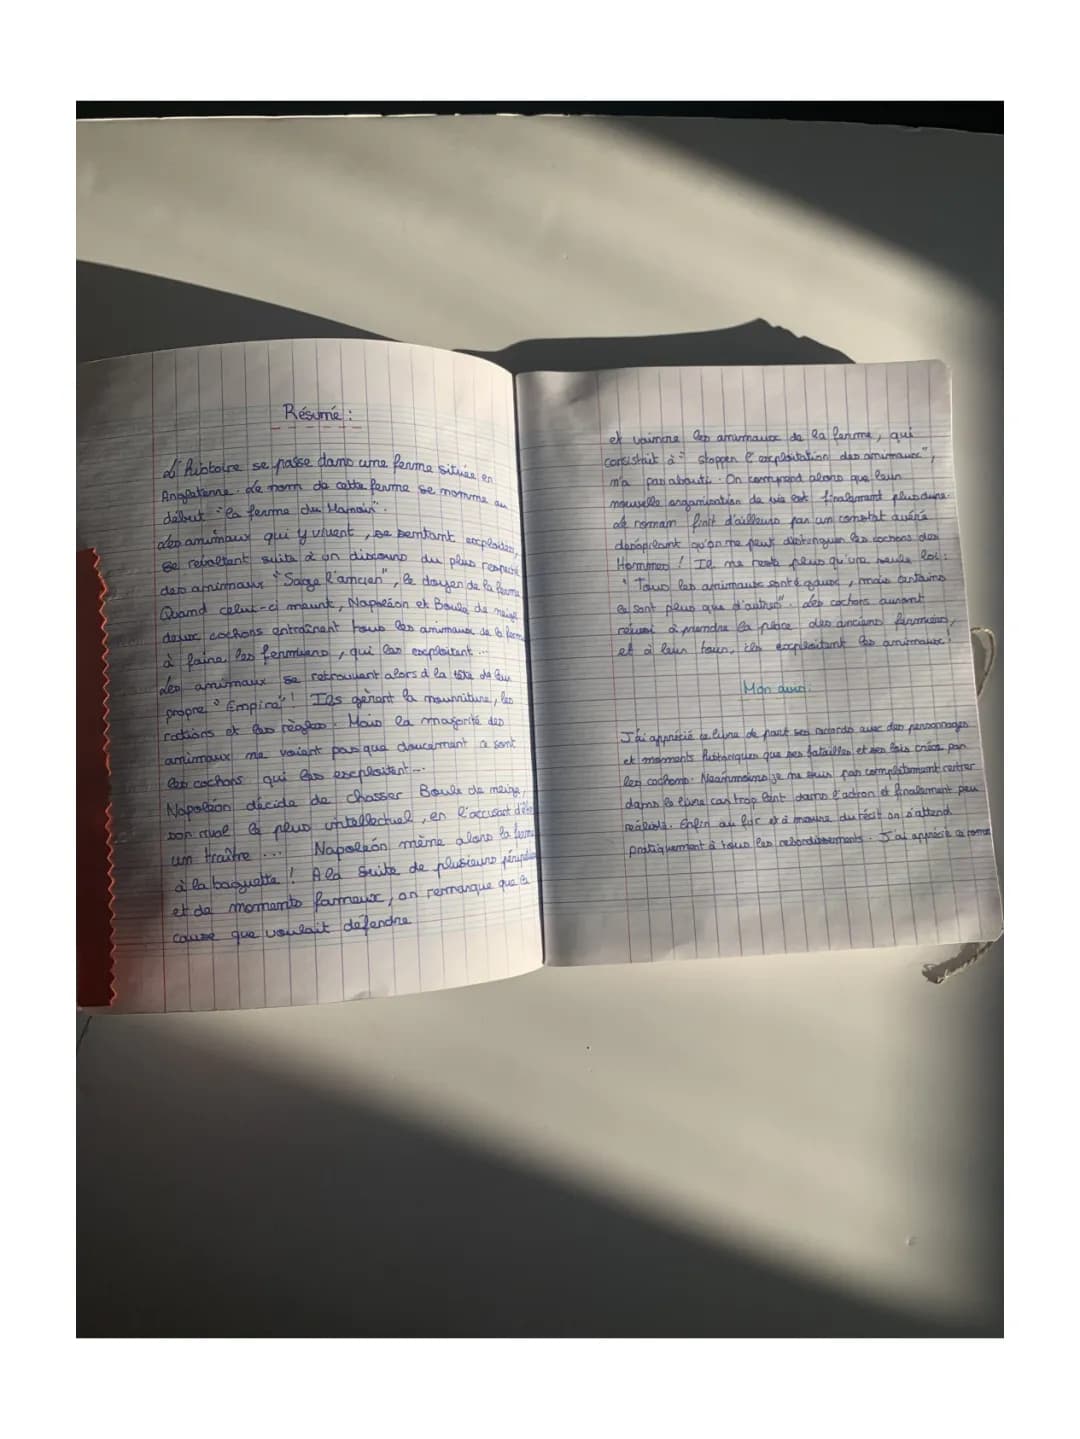 Résumé :
L'histoire se passe dans une ferme située en
Angleterre. Le nom de cette ferme se nomme au
début "la ferme du Manoir".
Les animaux qui y vivent, se sentant exploités,
se révoltent suite à un discours du plus respecté
des animaux "Sage l'ancien", le doyen de la ferme
Quand celui-ci meurt, Napoléon et Boule de neige
deux cochons entraînent tous les animaux de la ferme
à faire les fermiers, qui les exploitent ...
Les animaux se retrouvent alors à la tête de leur
propre "Empire" ! Ils gèrent la nourriture, les
rations et les règles. Mais la majorité des
animaux ne voient pas que doucement ce sont
les cochons qui les exploitent ...
Napoléon décide de chasser Boule de neige,
son rival le plus intellectuel, en l'accusant d'être
un traître ... Napoléon mène alors la ferme
à la baguette ! A la suite de plusieurs péripéties
et de moments fameux, on remarque que la
cause que voulait défendre
et vaincre les animaux de la ferme, qui
consistait à " stopper l'exploitation des animaux",
n'a pas abouti. On comprend alors que leur
nouvelle organisation de vie est finalement plus dure.
Le roman finit d'ailleurs par un constat avéré
qu'on ne peut distinguer les cochons des
Hommes ! Il ne reste plus qu'une seule loi :
" Tous les animaux sont égaux, mais certains
le sont plus que d'autres". Les cochons auront
réussi à prendre la place des anciens fermiers,
et à leur tour, ils exploitent les animaux !
Mon avis :
J'ai apprécié ce livre de part ses raccords avec des personnages
et moments historiques que ses batailles et ses lois créés par
les cochons. Néanmoins je ne suis pas complètement rentrer
dans le livre car trop lent dans l'action et finalement peu
réaliste. Enfin au fur et à mesure du récit on s'attend
pratiquement à tous les rebondissements. J'ai apprécié ce roman